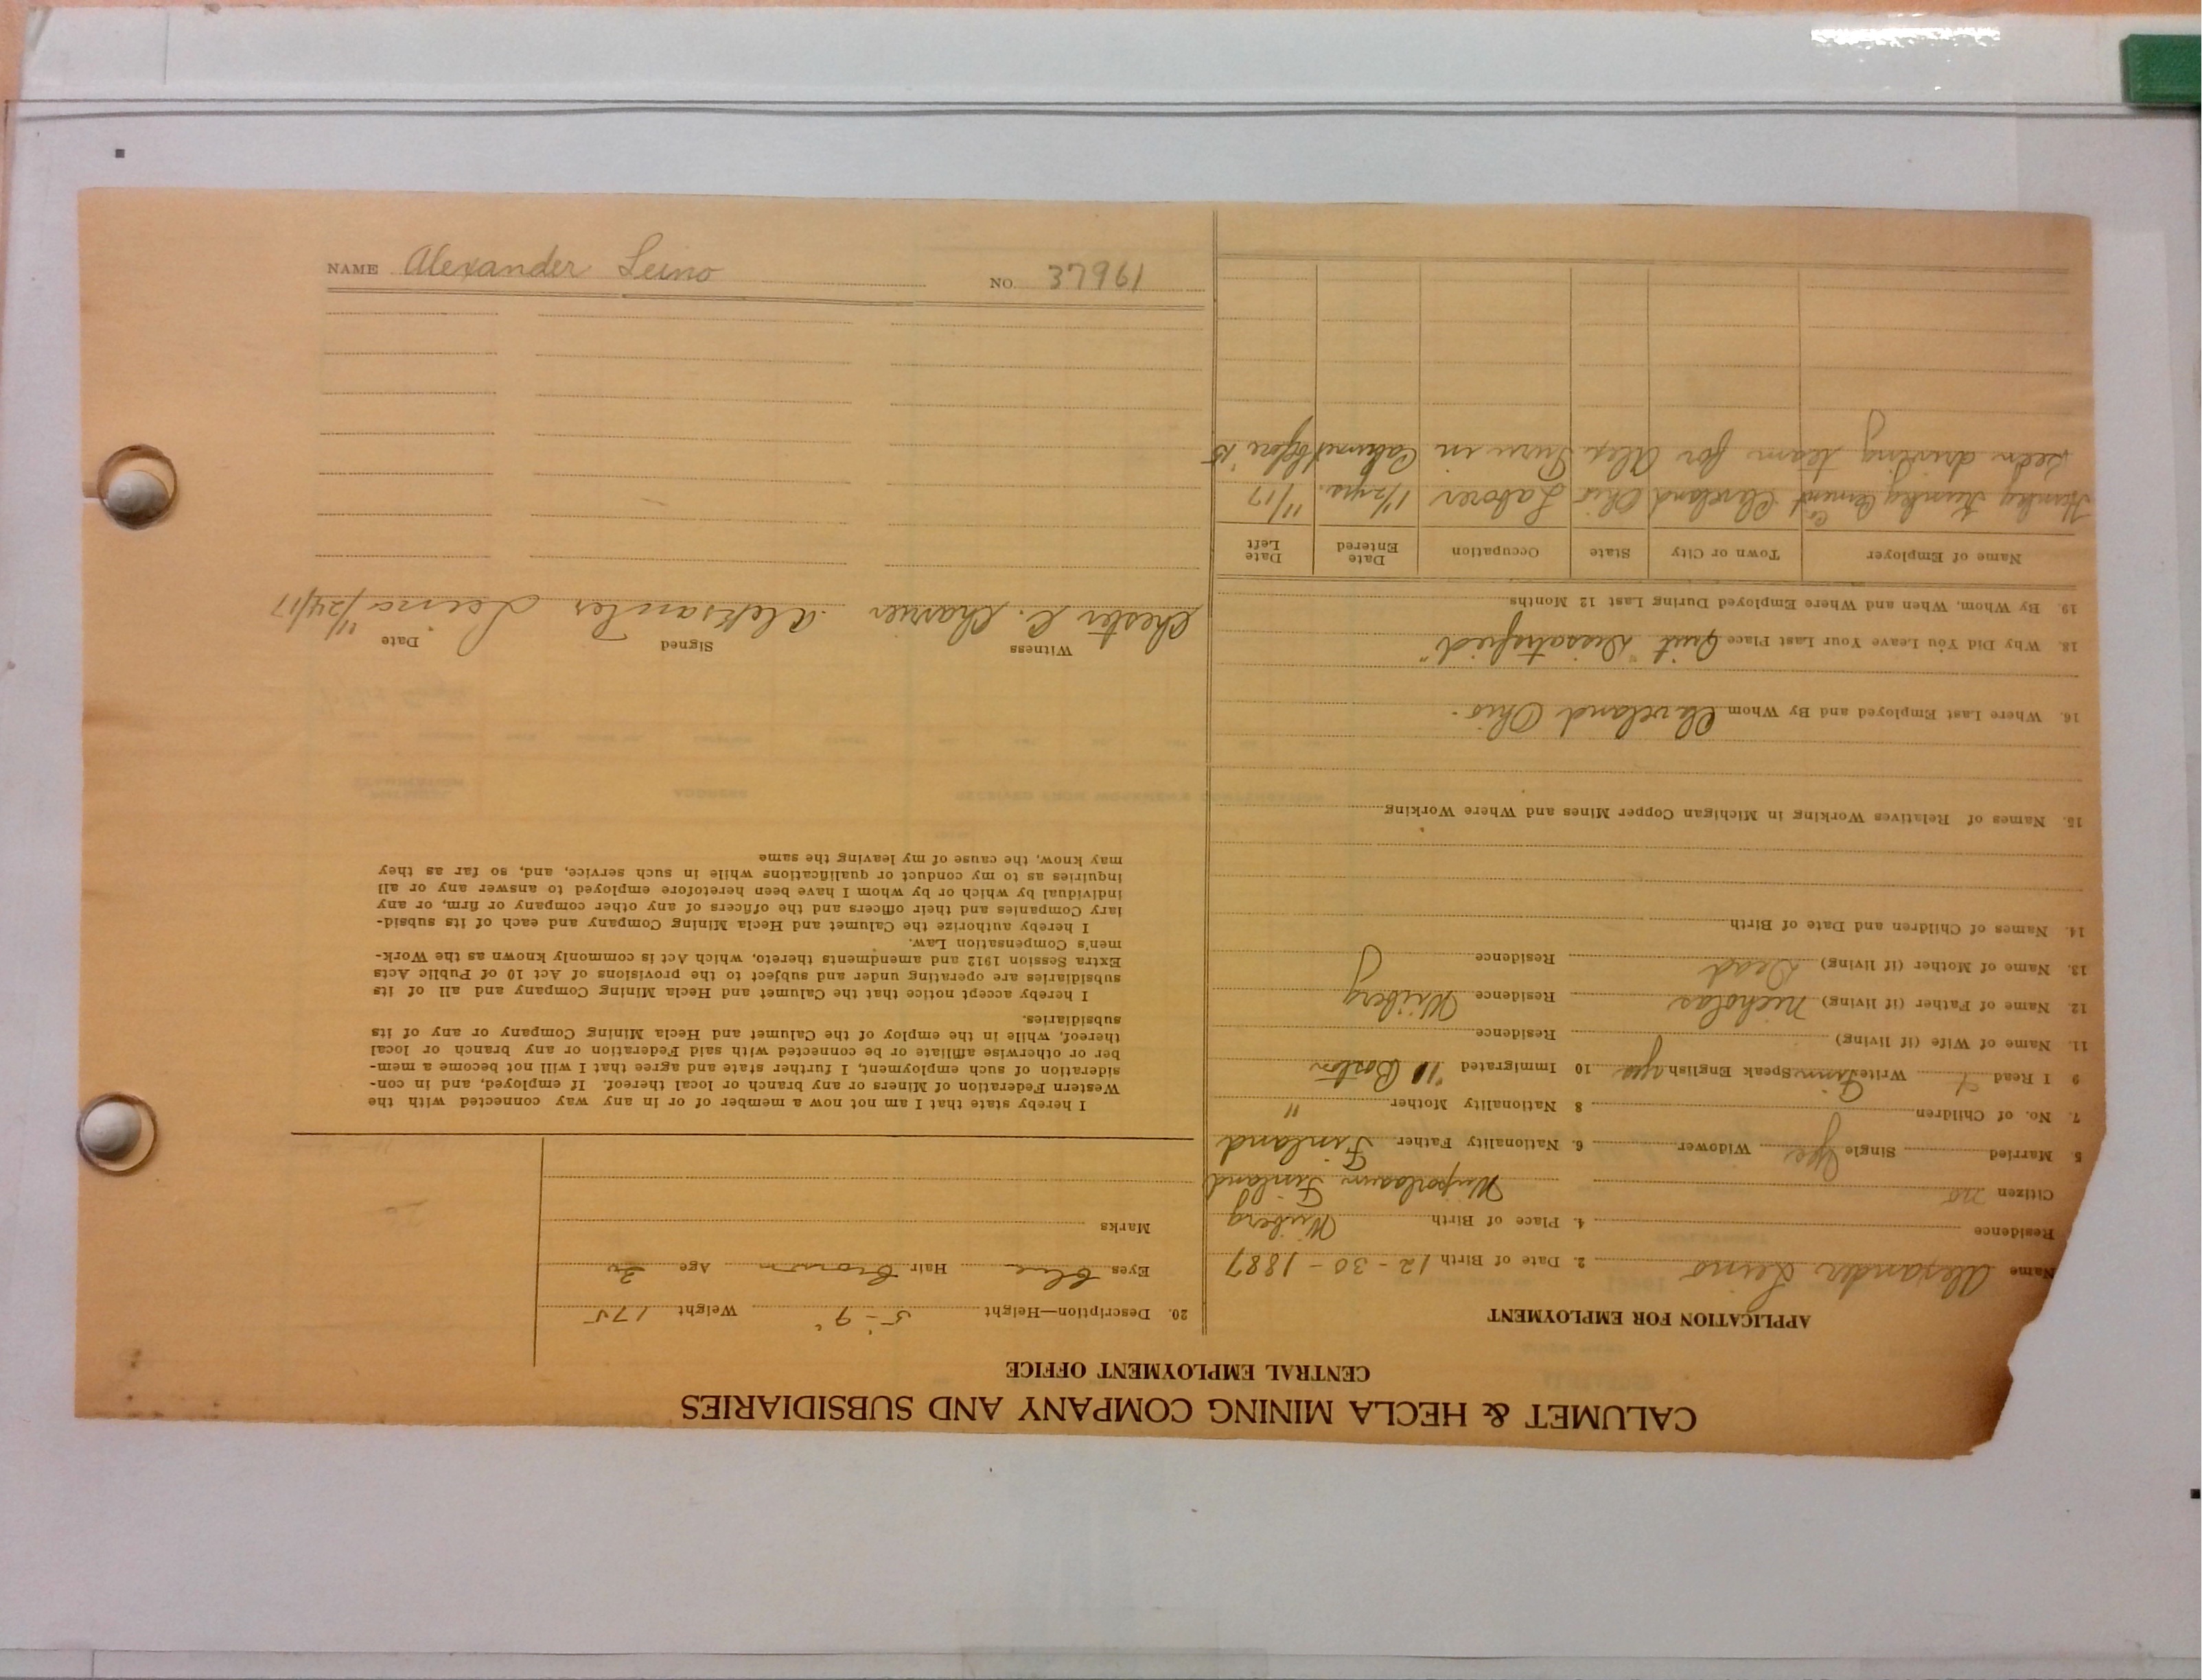 CALUMET & HECLA MINING COMPANY AND SUBSIDIARIES
CENTRAL EMPLOYMENT OFFICE
APPLICATION FOR EMPLOYMENT
Name Alexander Leino 2. Date of Birth 12-30-1887
Residence 4. Place of Birth Wiiberg
Citizen no Finland
5 Married Single Yes Widower 6. Nationality Father Finland
7. No. of Children 8 Nationality Mother "
9 I Read & Write Finn Speak English yes 10 Immigrated '11 Boston
11. Name of Wife (if living) Residence
12. Name of Father (if living) Nicholas Residence Wiiberg
13. Name of Mother (if living) Dead Residence
14. Names of Children and Date of Birth
15. Names of Relatives Working in Michigan Copper Mines and Where Working
16. Where Last Employed and By Whom Cleveland Ohio.
18. Why Did You Leave Your Last Place Quit "Dissatisfied"
19. By Whom, When and Where Employed During Last 12 Months
Name of Employer Town or City State Occupation Date Entered Date Left
Cement Co Cleveland Ohio Laborer 1 1/2 yrs. 11/17
Been driving team for Alex in Calumet before '15
20. Description—Height 5'-9" Weight 175
Eyes blue Hair Brown Age 30
Marks
I hereby state that I am not now a member of or in any way connected with the
Western Federation of Miners or any branch or local thereof. If employed, and in con-
sideration of such employment, I further state and agree that I will not become a mem-
ber or otherwise affiliate or be connected with said Federation or any branch or local
thereof, while in the employ of the Calumet and Hecla Mining Company or any of its
subsidiaries.
I hereby accept notice that the Calumet and Hecla Mining Company and all of its
subsidiaries are operating under and subject to the provisions of Act 10 of Public Acts
Extra Session 1912 and amendments thereto, which Act is commonly known as the Work-
men's Compensation Law.
I hereby authorize the Calumet and Hecla Mining Company and each of its subsid-
iary Companies and their officers and the officers of any other company or firm, or any
individual by which or by whom I have been heretofore employed to answer any or all
inquiries as to my conduct or qualifications while in such service, and, so far as they
may know, the cause of my leaving the same
Witness Signed Date
Chester C. Aleksander Leino 11/24/17
NAME Alexander Leino NO. 37961